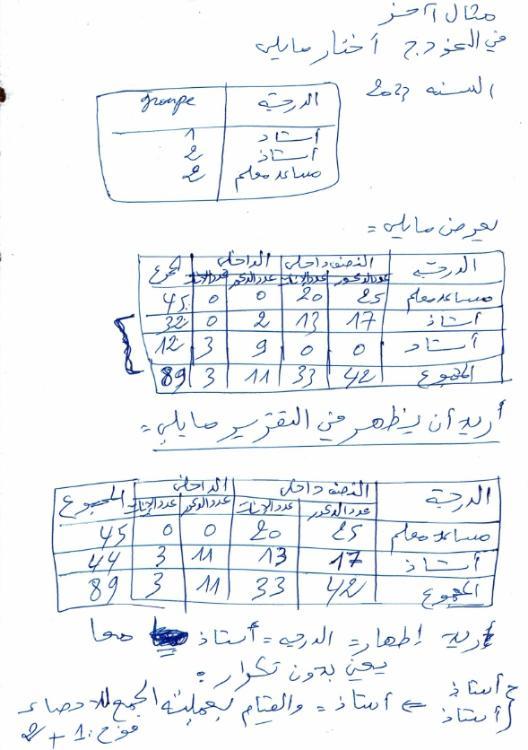 مثال آخر
في النموذج أختار مايلي
السنة 2023
الدرجة groupe
أستاذ 1
أستاذ 2
مساعد معلم 2
يعرض مايلي =
الدرجة النصف داخلي الداخلي المجموع
عدد الذكور عدد الإناث عدد الذكور عدد الإناث
مساعد معلم 25 20 0 0 45
أستاذ 17 13 2 0 32
أستاذ 0 0 9 3 12
المجموع 42 33 11 3 89
أريد أن يظهر في التقرير مايلي =
الدرجة النصف داخلي الداخلي المجموع
عدد الذكور عدد الإناث عدد الذكور عدد الإناث
مساعد معلم 25 20 0 0 45
أستاذ 17 13 11 3 44
المجموع 42 33 11 3 89
أريد إظهار = الدرجة = أستاذ معا
يعني بدون تكرار :
أستاذ
أستاذ ⇐ أستاذ = والقيام بعملية الجمع للإحصاء
فوج : 1 + 2